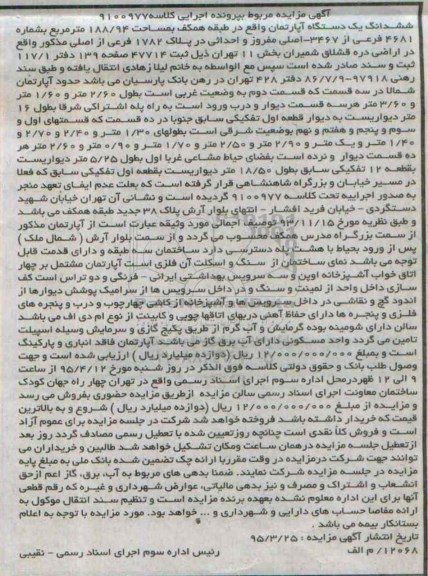 آگهی مزایده مربوط بپرونده اجرایی کلاسه ۹۱۰۰۹۷۷
ششدانگ یک دستگاه آپارتمان واقع در طبقه همکف بمساحت ۱۸۸/۹۴ مترمربع بشماره
۴۶۸۱ فرعی از ۳۴۶۷-اصلی مفروز و احداثی در پلاک ۱۷۸۲ فرعی از اصلی مذکور واقع
در اراضی دره قشلاق شمیران بخش ۱۱ تهران ذیل ثبت ۴۷۷۱۴ صفحه ۱۳۹ دفتر ۱۱۷/۱
ثبت و سند صادر شده است سپس مع الواسطه به خانم لیلا زهادی انتقال یافته و طبق سند
رهنی ۹۷۹۱۸-۸۶/۷/۹ دفتر ۴۲۸ تهران در رهن بانک پارسیان می باشد حدود آپارتمان
شمالا در سه قسمت که قسمت دوم به وضعیت غربی است بطول ۲/۶۰ متر و ۱/۶۰ متر
و ۳/۶۰ متر هرسه قسمت دیوار و درب ورود است به راه پله اشتراکی شرقا بطول ۱۶
متر دیواریست به دیوار قطعه اول تفکیکی سابق جنوبا در ده قسمت که قسمتهای اول و
سوم و پنجم و هفتم و نهم بوضعیت شرقی است بطولهای ۱/۳۰ متر و ۲/۴۰ و ۲/۷۰ و
۱/۴۰ متر و یک متر و ۲/۹۰ متر و ۲/۵۰ متر و ۱/۷۰ متر و ۰/۹۰ متر و ۲/۶۰ متر هر
ده قسمت دیوار و نرده است بفضای حیاط مشاعی غربا اول بطول ۵/۲۵ متر دیواریست
بقطعه ۱۲ تفکیکی سابق بطول ۱۸/۵۰ متر دیواریست بقطعه اول تفکیکی سابق که فعلا
در مسیر خیابان و بزرگراه شاهنشاهی قرار گرفته است که بعلت عدم ایفای تعهد منجر
به صدور اجراییه تحت کلاسه ۹۱۰۰۹۷۷ گردیده است و نشانی آن تهران خیابان شهید
دستگردی - خیابان فرید افشار - انتهای بلوار آرش پلاک ۳۸ جدید طبقه همکف می باشد
و طبق نظریه مورخ ۹۳/۱۱/۱۵ توصیف اجمالی مورد وثیقه عبارت است از آپارتمان مذکور
از سمت بزرگراه مدرس همکف محسوب می گردد و از سمت بلوار آرش ( شمال ملک )
پس از ورود بحیاط با هشت پله دسترسی دارد ساختمان سه طبقه و دارای قدمت قابل
توجه می باشد نمای ساختمان از سنگ و اسکلت آن فلزی است آپارتمان مشتمل بر چهار
اتاق خواب آشپزخانه اوپن و سه سرویس بهداشتی ایرانی - فرنگی و دو تراس است کف
سازی داخل واحد از لمینت و سنگ و در داخل سرویس ها از سرامیک پوشش دیوارها از
اندود گچ و نقاشی در داخل سرویس ها و آشپزخانه از کاشی چهارچوب و درب و پنجره های
فلزی و پنجره ها دارای حفاظ آهنی دربهای اتاقها چوبی و کابینت از نوع ام دی اف می باشد
سالن دارای شومینه بوده گرمایش و آب گرم از طریق پکیج گازی و سرمایش وسیله اسپیلت
تامین می گردد واحد مسکونی دارای آب برق گاز می باشد آپارتمان فاقد انباری و پارکینگ
است و بمبلغ ۱۲/۰۰۰/۰۰۰/۰۰۰ ریال (دوازده میلیارد ریال ) ارزیابی شده است و جهت
وصول طلب بانک و حقوق دولتی کلاسه فوق الذکر در روز شنبه مورخ ۹۵/۴/۱۲ از ساعت
۹ الی ۱۲ ظهر درمحل اداره سوم اجرای اسناد رسمی واقع در تهران چهار راه جهان کودک
ساختمان معاونت اجرای اسناد رسمی سالن مزایده ازطریق مزایده حضوری بفروش می رسد
و مزایده از مبلغ ۱۲/۰۰۰/۰۰۰/۰۰۰ ریال (دوازده میلیارد ریال ) شروع و به بالاترین
قیمت که خریدار داشته باشد فروخته خواهد شد شرکت در جلسه مزایده برای عموم آزاد
است و فروش کلاً نقدی است چنانچه روز تعیین شده با تعطیل رسمی مصادف گردد روز بعد
ازتعطیل جلسه مزایده درهمان ساعت ومکان تشکیل خواهد شد طالبین و خریداران می
توانند جهت شرکت درمزایده در وقت مقرربا ارائه چک تضمین شده بانک ملی به مبلغ پایه
مزایده در جلسه مزایده شرکت نمایند. ضمنا بدهی های مربوط به آب، برق، گاز اعم ازحق
انشعاب و اشتراک و مصرف و نیز بدهی مالیاتی، عوارض شهرداری و غیره که رقم قطعی
آنها برای این اداره معلوم نشده بعهده برنده مزایده است و تنظیم سند انتقال موکول به
ارائه مفاصا حساب های دارایی و شهرداری و ... خواهد بود. مورد مزایده با توجه به اعلام
بستانکار بیمه می باشد .
تاریخ انتشار آگهی مزایده : ۹۵/۳/۲۵
۱۲۰۶۸/ م الف رئیس اداره سوم اجرای اسناد رسمی - نقیبی